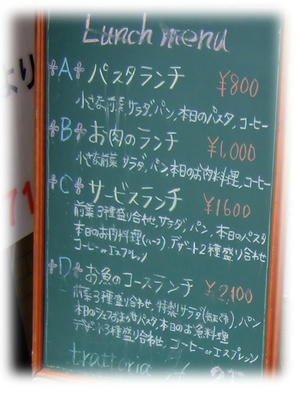 Lunch menu
より
A パスタランチ ¥800
小さな前菜 サラダ, パン, 本日のパスタ, コーヒー
B お肉のランチ ¥1,000
小さな前菜 サラダ, パン, 本日のお肉料理, コーヒー
71
C サービスランチ ¥1600
前菜3種盛り合わせ, サラダ, パン, 本日のパスタ
本日のお肉料理(ハーフ), デザート2種盛り合わせ
コーヒー or エスプレッソ
D お魚のコースランチ ¥2,100
前菜3種盛り合わせ, 特製サラダ, パン
本日のシェフおまかせパスタ, 本日のお魚料理
デザート3種盛り合わせ, コーヒー or エスプレッソ
trattoria